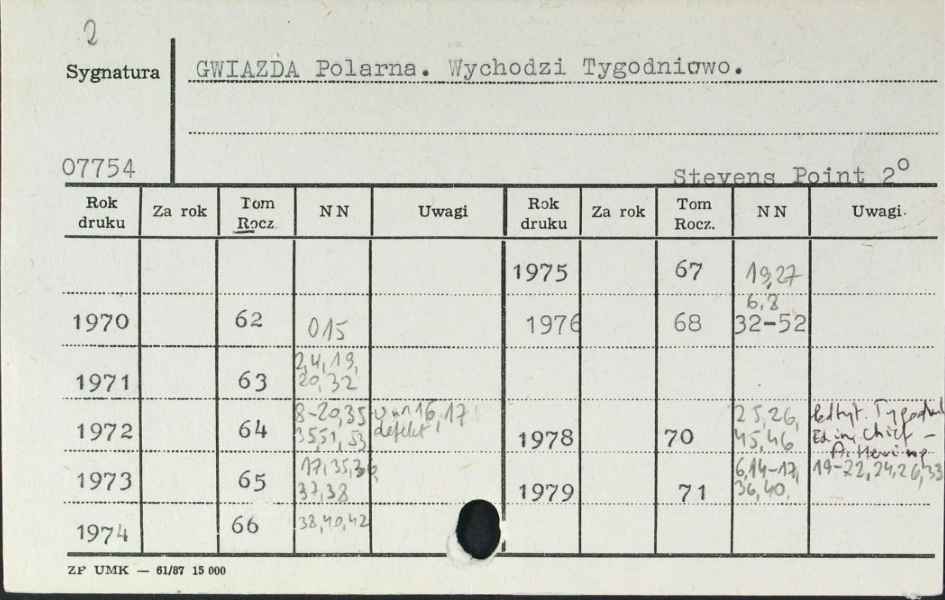 2
Sygnatura GWIAZDA Polarna. Wychodzi Tygodniowo.
07754 Stevens Point 2⁰
Rok druku Za rok Tom Rocz. NN Uwagi Rok druku Za rok Tom Rocz. NN Uwagi
1975 67 19,27
1970 62 015 1976 68 6,8 32-52
1971 63 2,4,19, 20,32
1972 64 8-20,35 3551,53 w nr 16,17 defekt! 1978 70 25,26, 45,46 Tygodnik Ed in Chief -
1973 65 17,35,36, 37,38 1979 71 6,14-17, 36,40, 19-22,24,26,33
1974 66 38,40,42
ZP UMK — 61/87 15 000